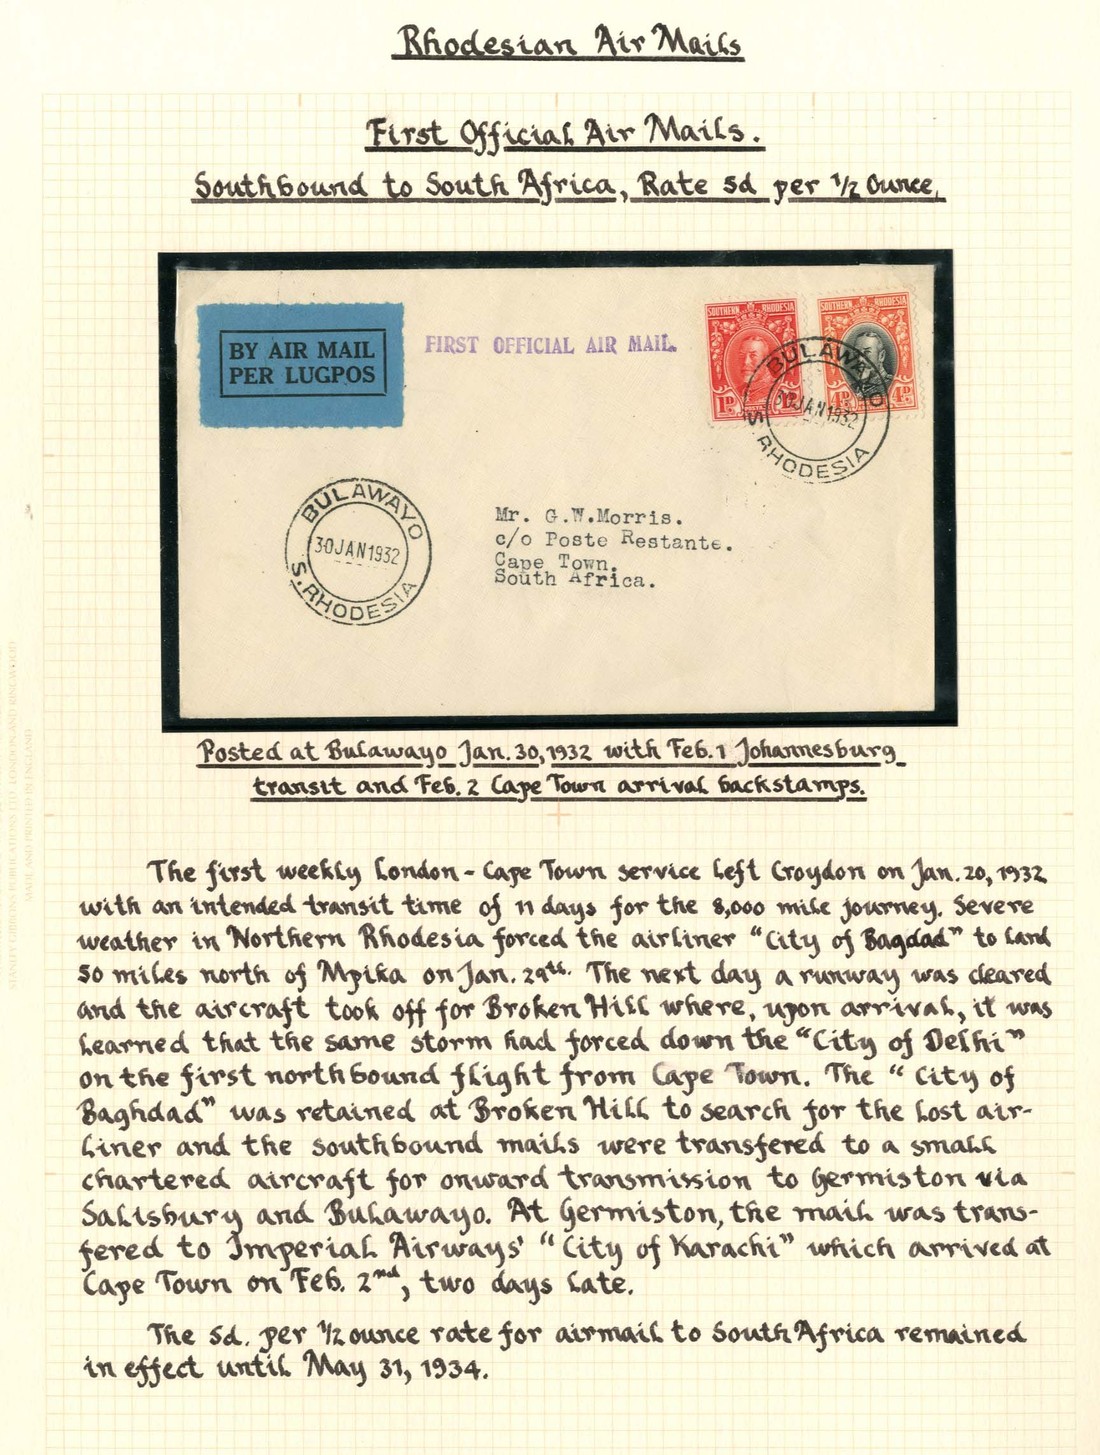 Rhodesian Air Mails
First Official Air Mails.
Southbound to South Africa, Rate 5d per 1/2 Ounce.
BY AIR MAIL
PER LUGPOS
FIRST OFFICIAL AIR MAIL.
SOUTHERN RHODESIA
1D
SOUTHERN RHODESIA
4D 4D
BULAWAYO
30 JAN 1932
S. RHODESIA
BULAWAYO
30 JAN 1932
S. RHODESIA
Mr. G.W.Morris.
c/o Poste Restante.
Cape Town.
South Africa.
Posted at Bulawayo Jan. 30, 1932 with Feb. 1 Johannesburg
transit and Feb. 2 Cape Town arrival backstamps.
The first weekly London - Cape Town service left Croydon on Jan. 20, 1932
with an intended transit time of 11 days for the 8,000 mile journey. Severe
weather in Northern Rhodesia forced the airliner "City of Bagdad" to land
50 miles north of Mpika on Jan. 29th. The next day a runway was cleared
and the aircraft took off for Broken Hill where, upon arrival, it was
learned that the same storm had forced down the "City of Delhi"
on the first northbound flight from Cape Town. The "City of
Baghdad" was retained at Broken Hill to search for the lost air-
liner and the southbound mails were transfered to a small
chartered aircraft for onward transmission to Germiston via
Salisbury and Bulawayo. At Germiston, the mail was trans-
fered to Imperial Airways' "City of Karachi" which arrived at
Cape Town on Feb. 2nd, two days late.
The 5d. per 1/2 ounce rate for airmail to South Africa remained
in effect until May 31, 1934.